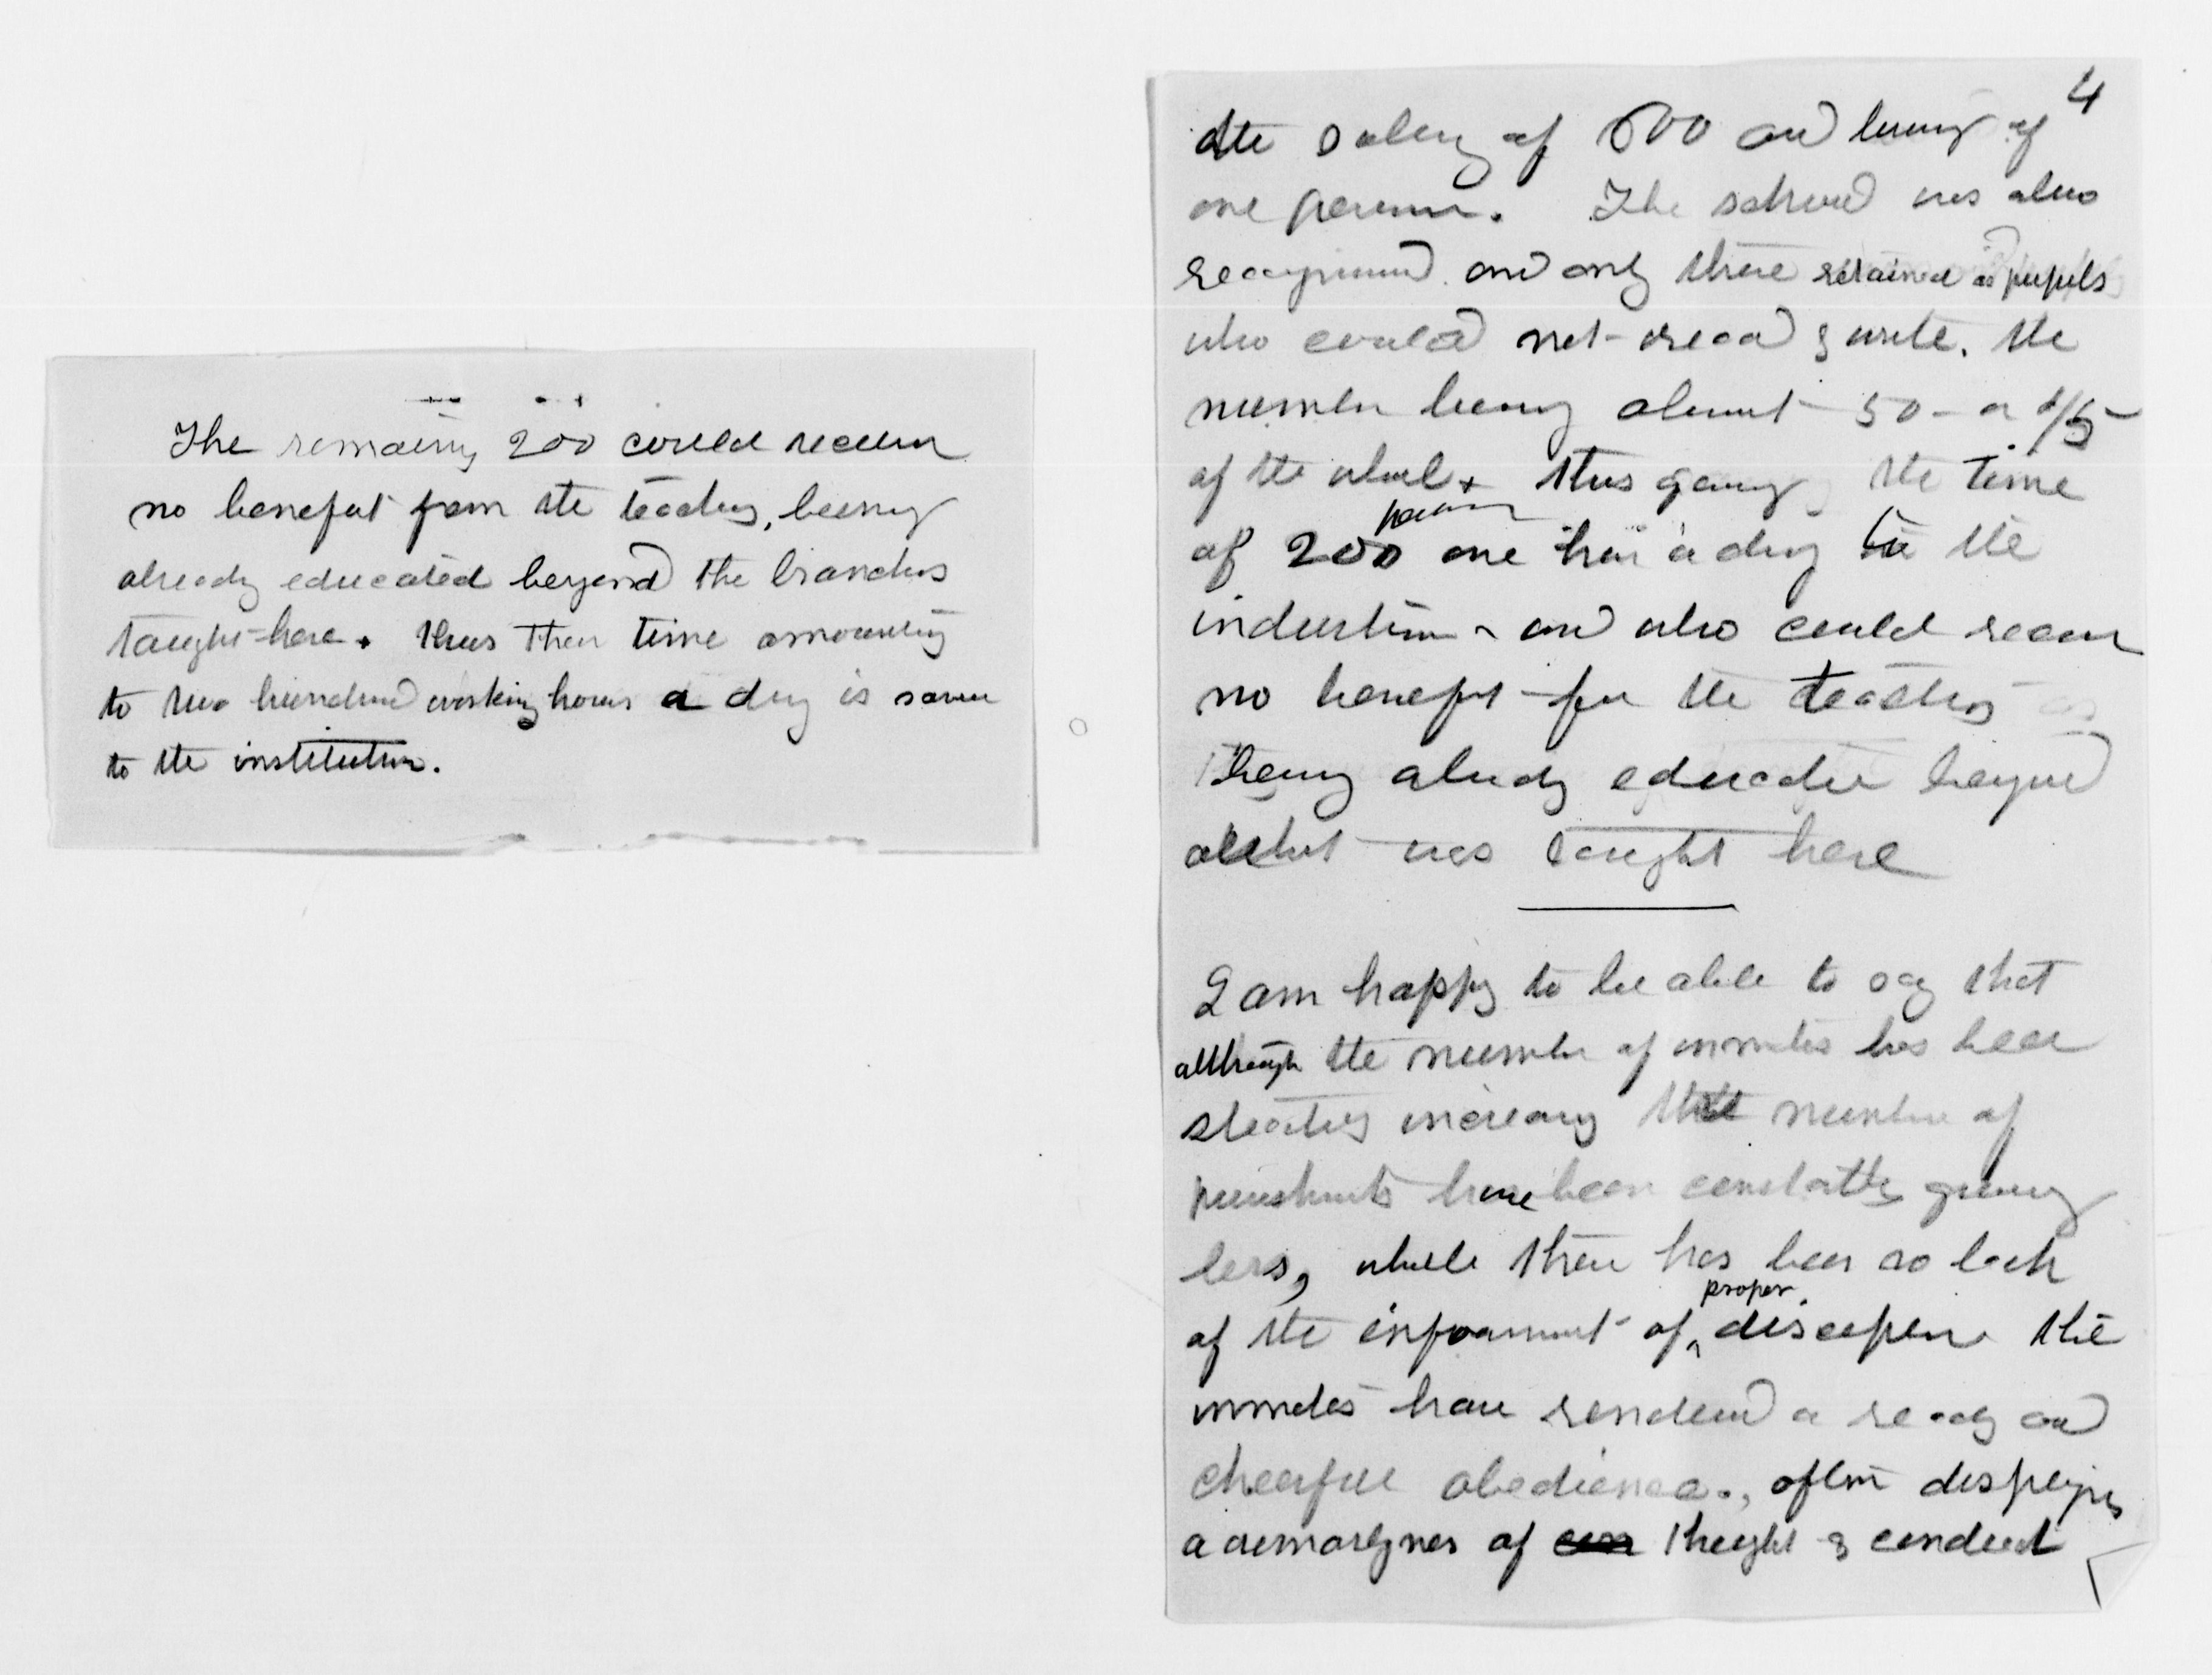 The remaining 200 could receive
no benefit from the teaching, being
already educated beyond the branches
taught here + thus their time amounting
to two hundred working hours a day is saved
to the institution.
4
the salary of 600 and living of
one person. The school was also
reorganized and only those retained as pupils
who could not read & write. the
number being about 50 - or 1/5
of the whole + thus giving the time
of 200 one hour a day to the
institution - and who could receive
no benefit from the teaching
being already educated beyond
what was taught here
I am happy to be able to say that
although the number of inmates has been
steadily increasing the number of
punishments have been constantly growing
less, while there has been no lack
proper
of the enforcement of discipline the
inmates have rendered a ready and
cheerful obedience., often displaying
a of thought & conduct